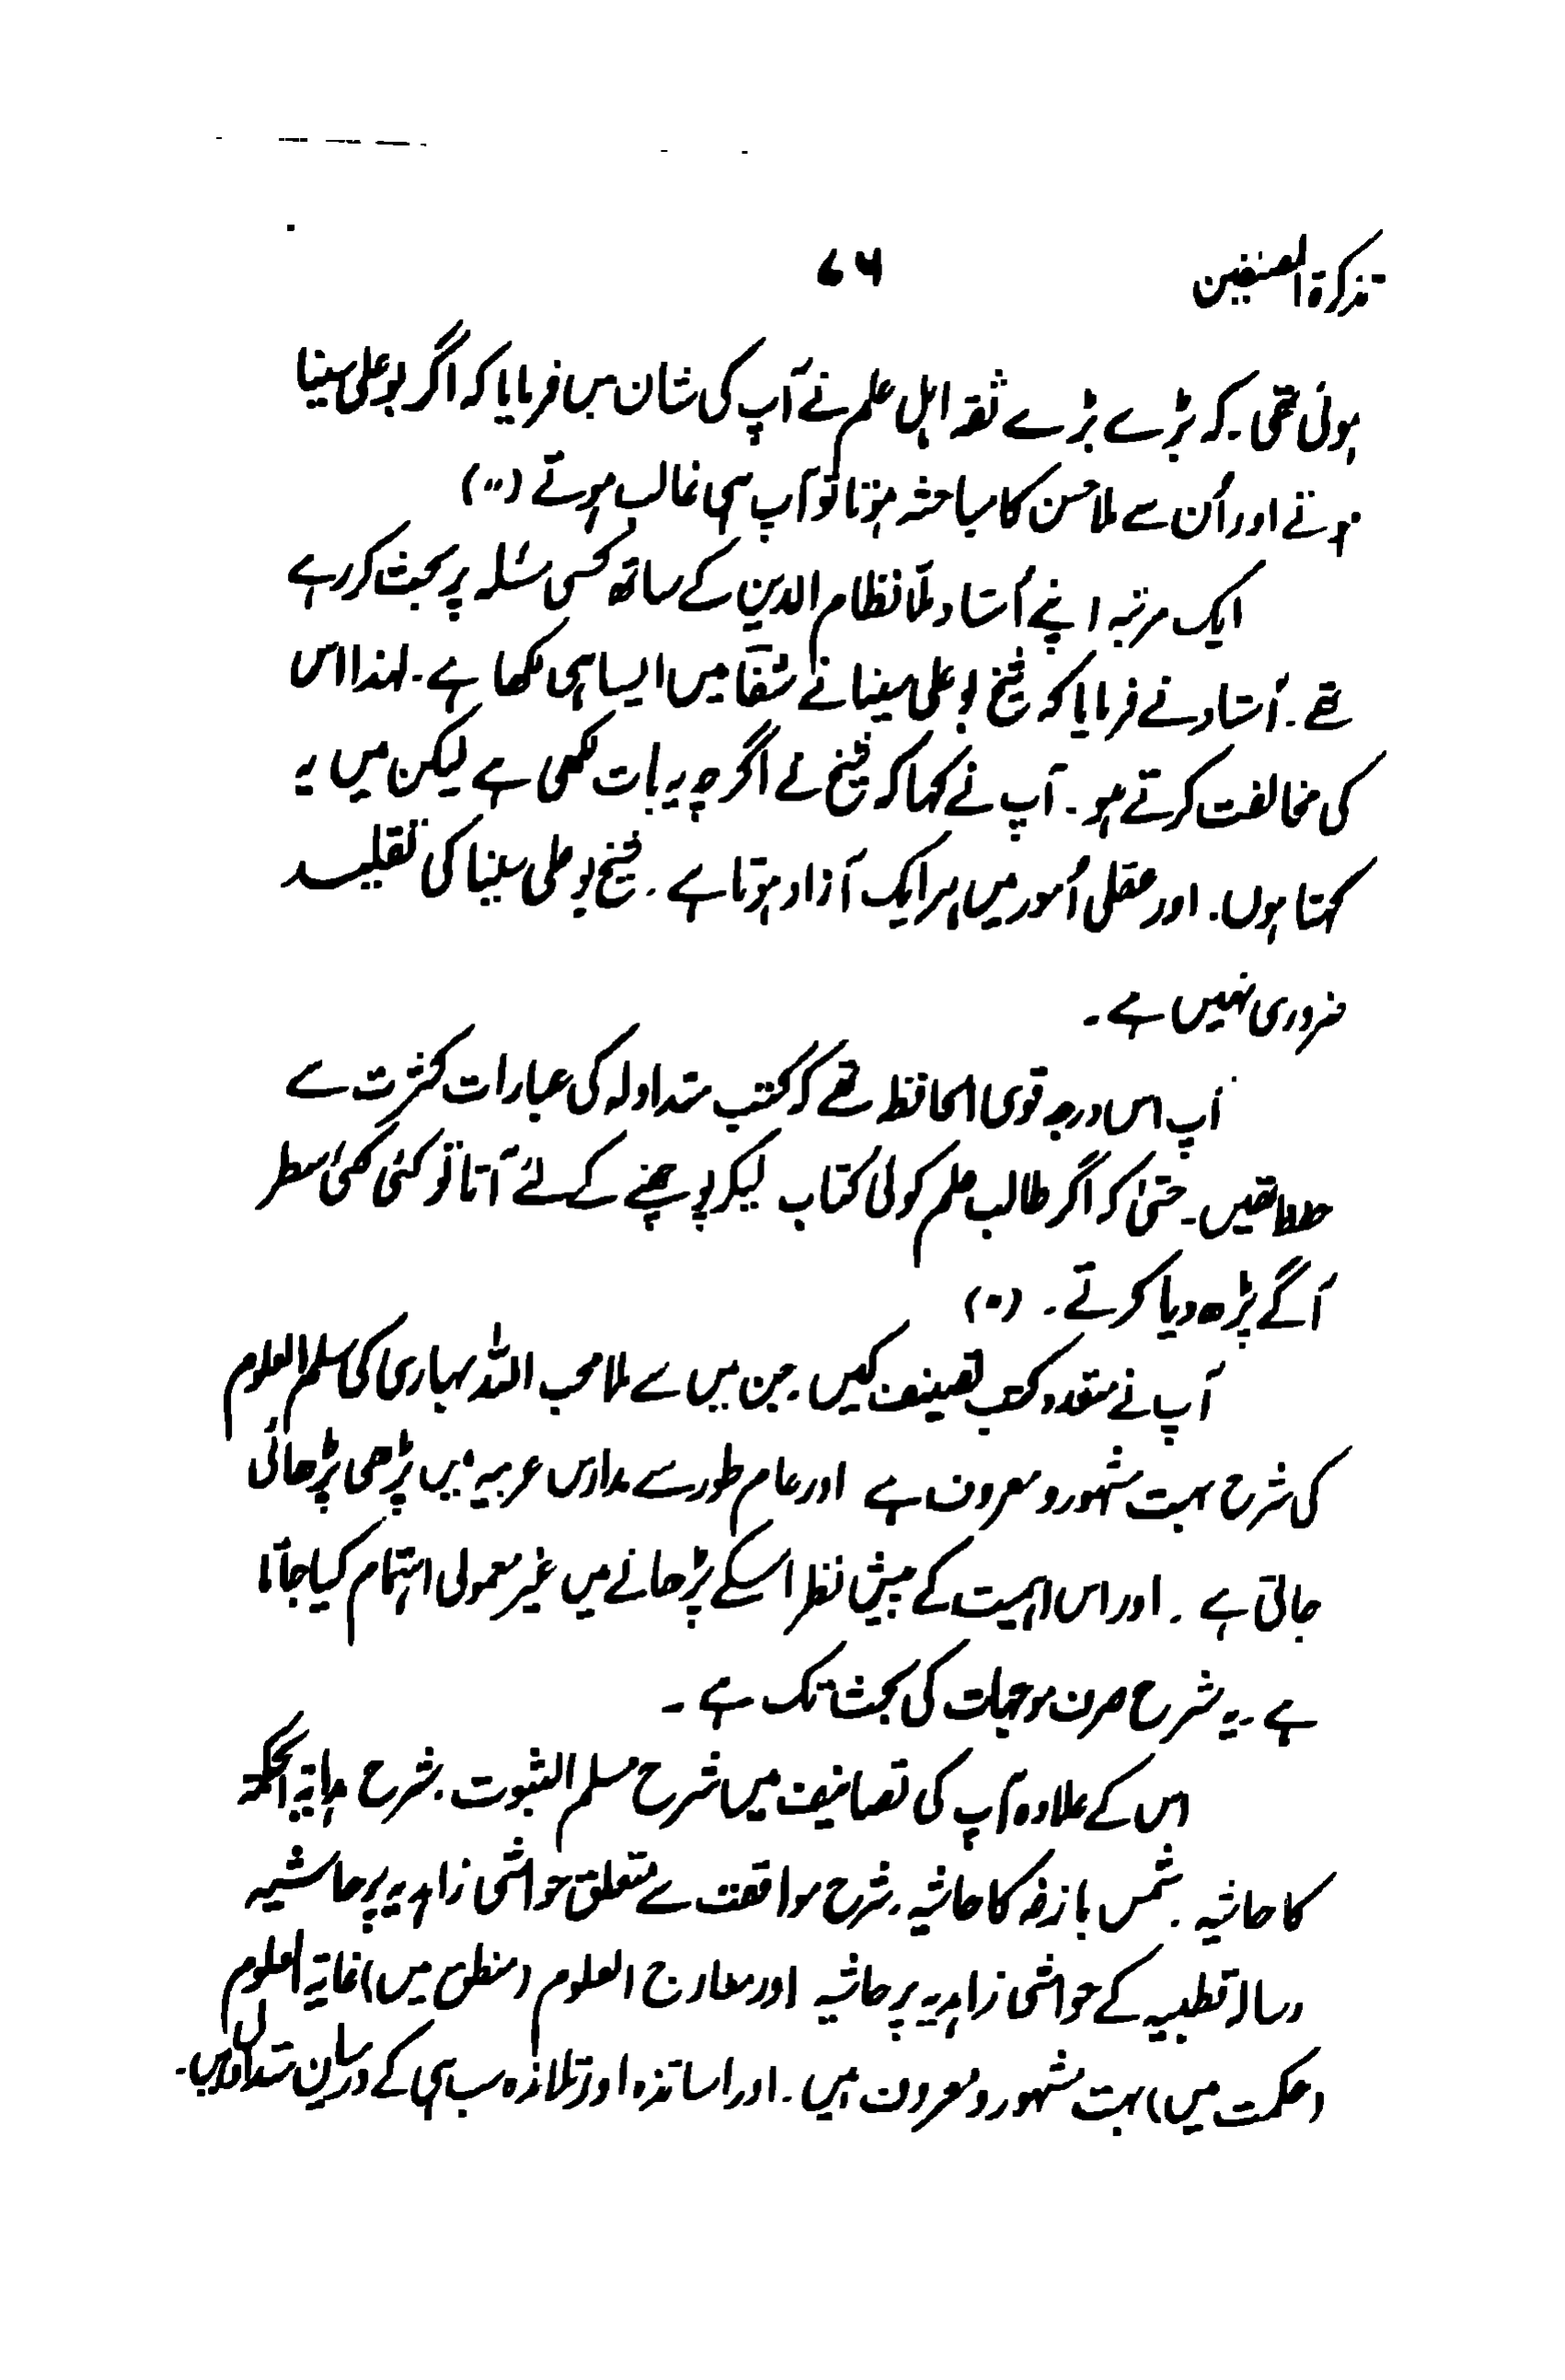 تذکرۃ المصنفین
۷۶
ہوئی تھی۔ کہ بڑے بڑے ثقہ اہل علم نے آپ کی شان میں فرمایا کہ اگر بوعلی سینا
ہوتے اور اُن سے ملا حسن کا مباحثہ ہوتا تو آپ ہی غالب ہوتے (۰۰)
ایک مرتبہ اپنے اُستاد ملّا نظام الدین کے ساتھ کسی مسئلہ پر بحث کر رہے
تھے۔ اُستاد نے فرمایا کہ شیخ بو علی سینا نے شفآ میں ایسا ہی لکھا ہے۔ لہٰذا اس
کی مخالفت کرتے ہو۔ آپ نے کہا کہ شیخ نے اگرچہ یہ بات لکھی ہے لیکن میں یہ
کہتا ہوں۔ اور عقلی اُمور میں ہر ایک آزاد ہوتا ہے۔ شیخ بو علی سینا کی تقلید
ضروری نہیں ہے۔
آپ اس درجہ قوی الحافظہ تھے کہ کتب متداولہ کی عبارات کثرت سے
حفظ تھیں۔ حتیٰ کہ اگر طالب علم کوئی کتاب لیکر پوچھنے کے لئے آتا تو کئی کئی سطر
آگے پڑھ دیا کرتے۔ (۰)
آپ نے متعدد کتب تصنیف کیں۔ جن میں سے ملا محب اللہ بہاری کی سلم العلوم
کی شرح بہت مشہور و معروف ہے اور عام طور سے مدارس عربیہ میں پڑھی پڑھائی
جاتی ہے۔ اور اس اہمیت کے پیش نظر اسکے پڑھانے میں غیر معمولی اہتمام کیا جاتا
ہے۔ یہ شرح صرف موجہات کی بحث تک ہے۔
اس کے علاوہ آپ کی تصانیف میں شرح مسلم الثبوت۔ شرح ہدایۃ الحکمۃ
کا حاشیہ۔ شمس بازغہ کا حاشیہ۔ شرح مواقف سے متعلق حواشی زاہدیہ پر حاشیہ
رسالہ قطبیہ کے حواشی زاہدیہ پر حاشیہ اور معارج العلوم (منطق میں) غایۃ العلوم
(حکمت میں) بہت مشہور و معروف ہیں۔ اور اساتذہ اور تلامذہ سب ہی کے درمیان متداول ہیں۔